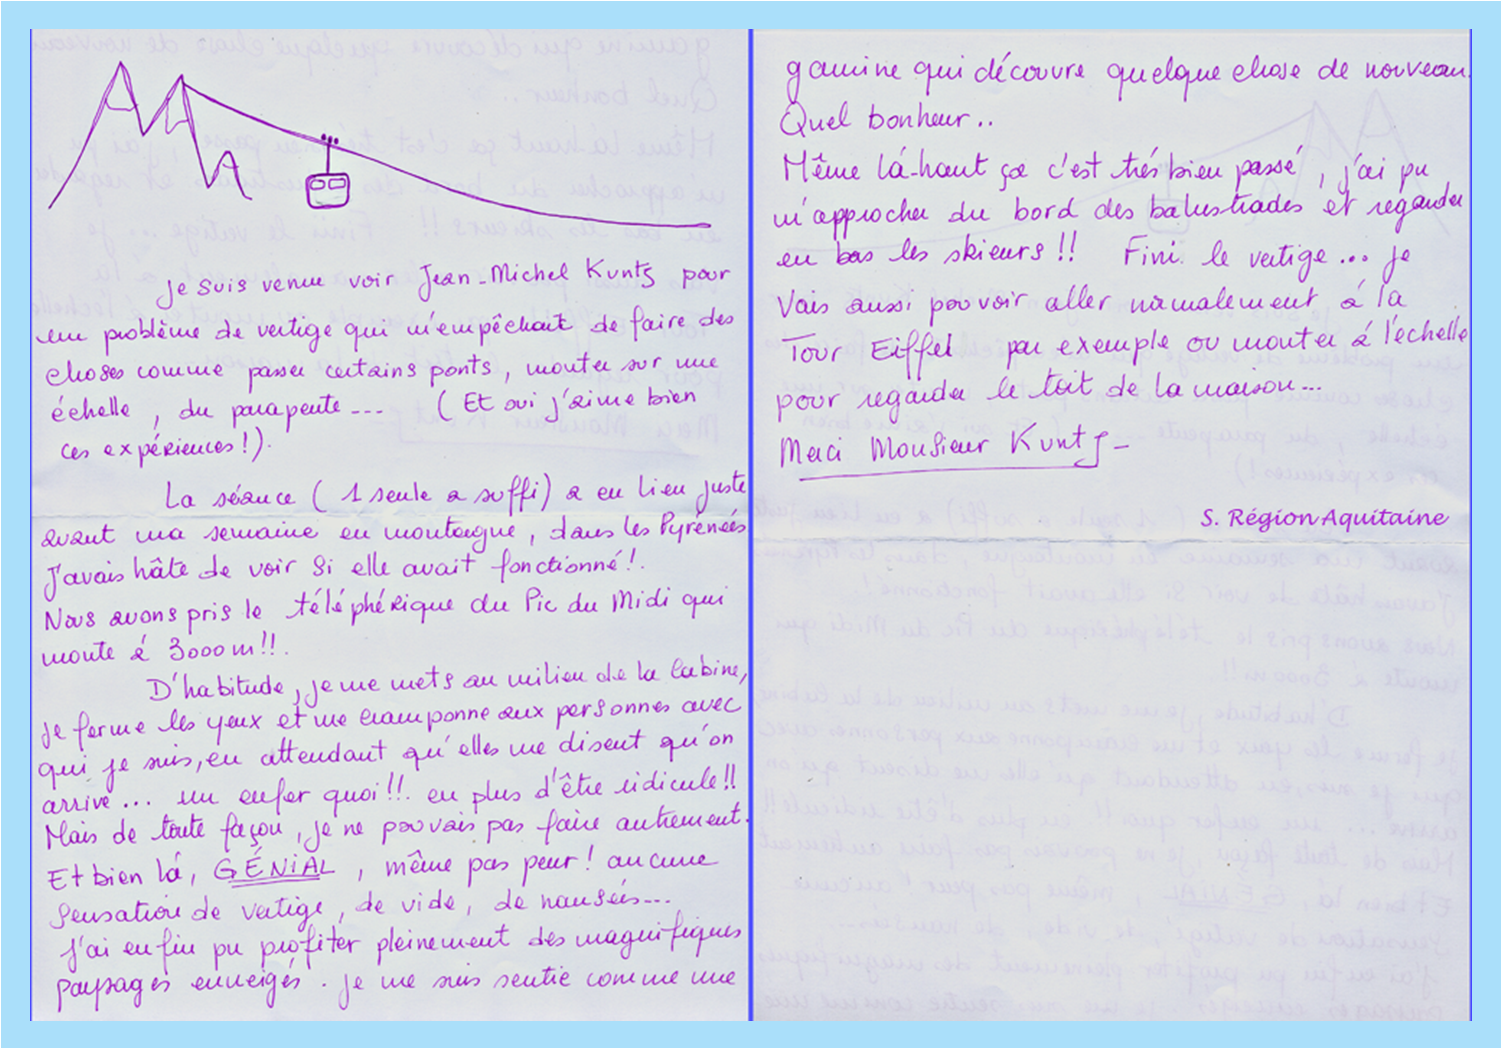 Je suis venue voir Jean-Michel Kunts pour
un problème de vertige qui m'empêchait de faire des
choses comme passer certains ponts, monter sur une
échelle, du parapente --- (Et oui j'aime bien
ces expériences!).
La séance (1 seule a suffi) a eu lieu juste
avant ma semaine en montagne, dans les Pyrénées
J'avais hâte de voir si elle avait fonctionné!.
Nous avons pris le téléphérique du Pic du Midi qui
monte à 3000m!!.
D'habitude, je me mets au milieu de la cabine,
je ferme les yeux et me cramponne aux personnes avec
qui je suis, en attendant qu'elles me disent qu'on
arrive... un enfer quoi!!! en plus d'être ridicule!!
Mais de toute façon, je ne pouvais pas faire autrement.
Et bien là, GÉNIAL, même pas peur! aucune
sensation de vertige, de vide, de nausées...
J'ai enfin pu profiter pleinement des magnifiques
paysages enneigés. Je me suis sentie comme une
gamine qui découvre quelque chose de nouveau.
Quel bonheur..
Même là-haut ça c'est très bien passé, j'ai pu
m'approcher du bord des balustrades et regarder
en bas les skieurs!! Fini le vertige... Je
vais aussi pouvoir aller normalement à la
Tour Eiffel par exemple ou monter à l'échelle
pour regarder le toit de la maison...
Merci Monsieur Kunts-
S. Région Aquitaine